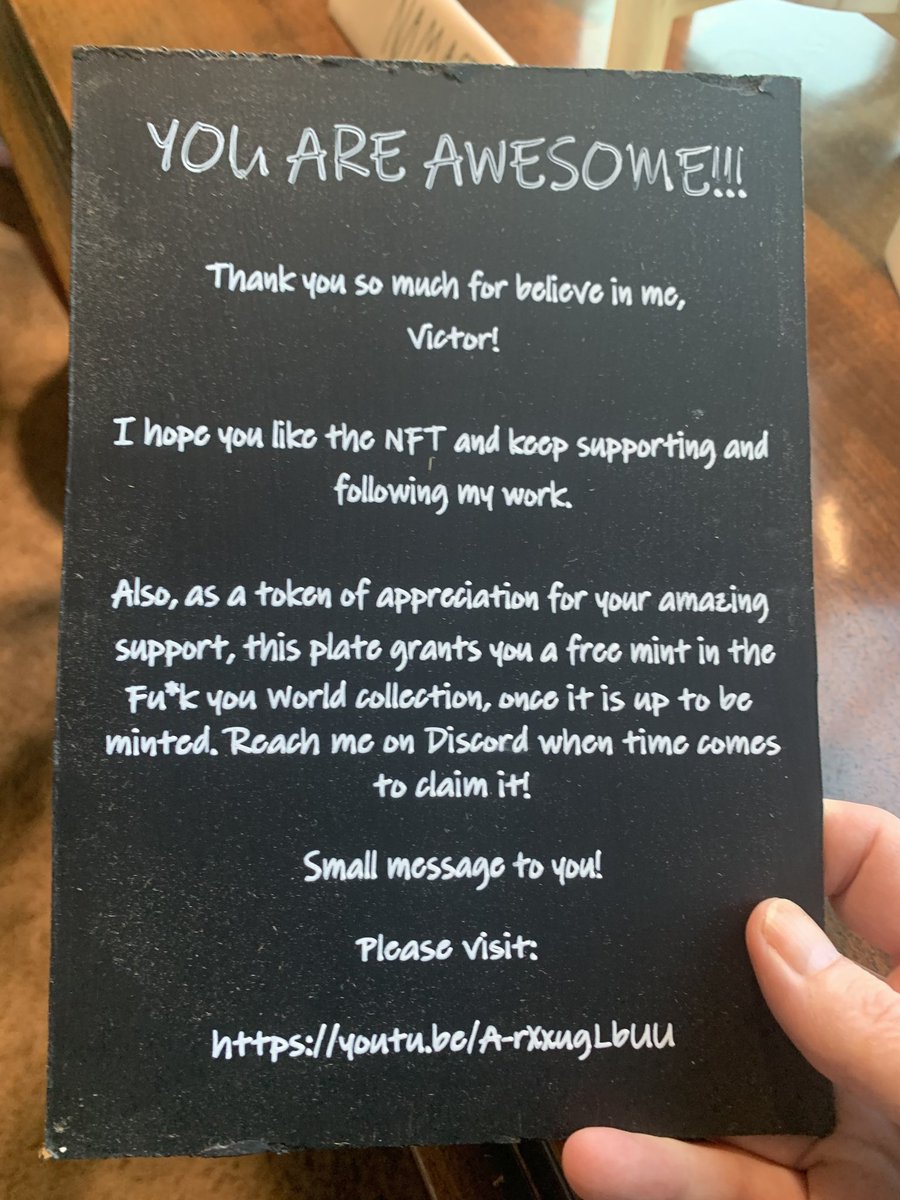 YOU ARE AWESOME!!!
Thank you so much for believe in me,
Victor!
I hope you like the NFT and keep supporting and
following my work.
Also, as a token of appreciation for your amazing
support, this plate grants you a free mint in the
Fu*k you World collection, once it is up to be
minted. Reach me on Discord when time comes
to claim it!
Small message to you!
Please visit:
https://youtu.be/A-rXxugLbUU